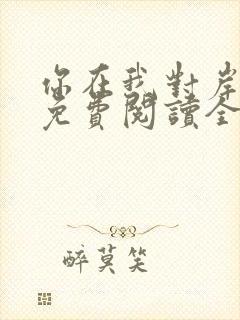 你在我對岸
免費閱讀全
醉莫笑